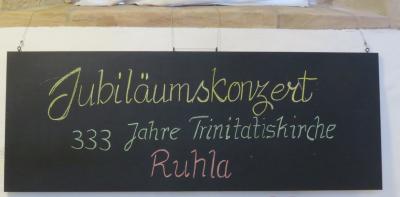 Jubiläumskonzert
333 Jahre Trinitatiskirche
Ruhla